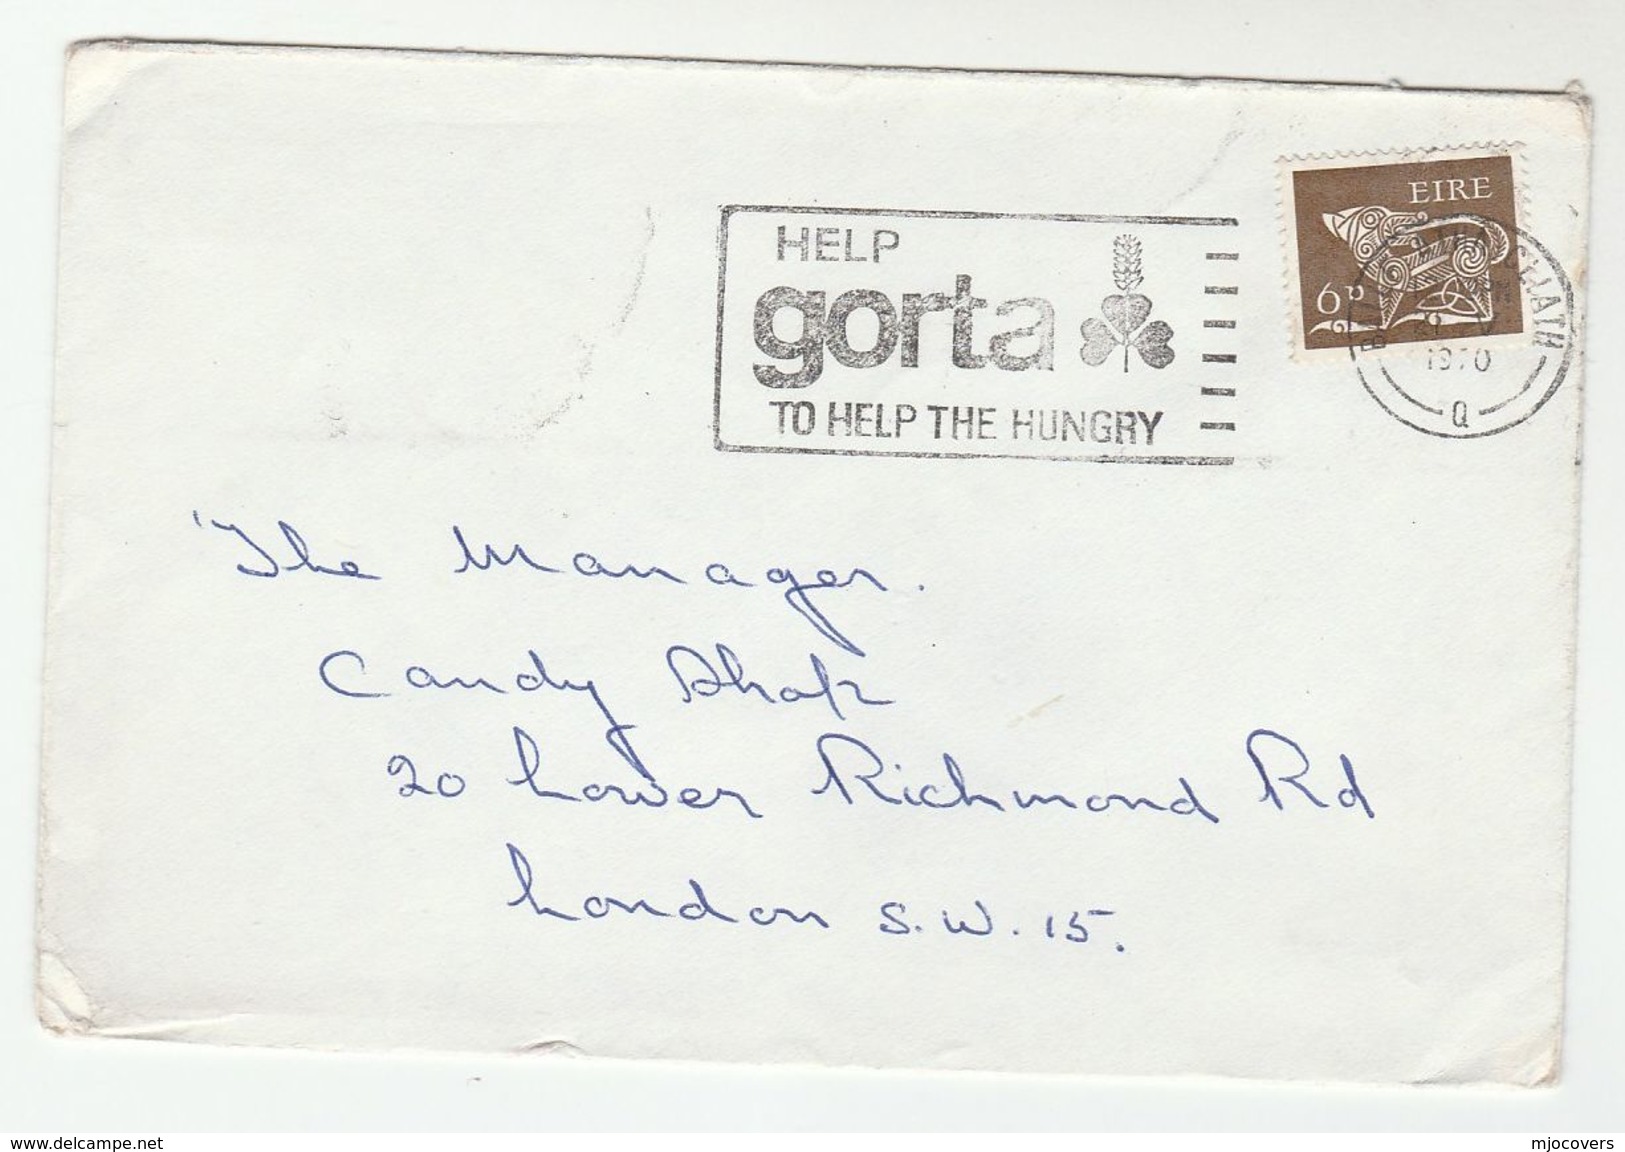 EIRE
6p
HELP
gorta
TO HELP THE HUNGRY
1970
Q
The Manager.
Candy Shop
20 Lower Richmond Rd
London S.W. 15.
www.delcampe.net
mjocovers